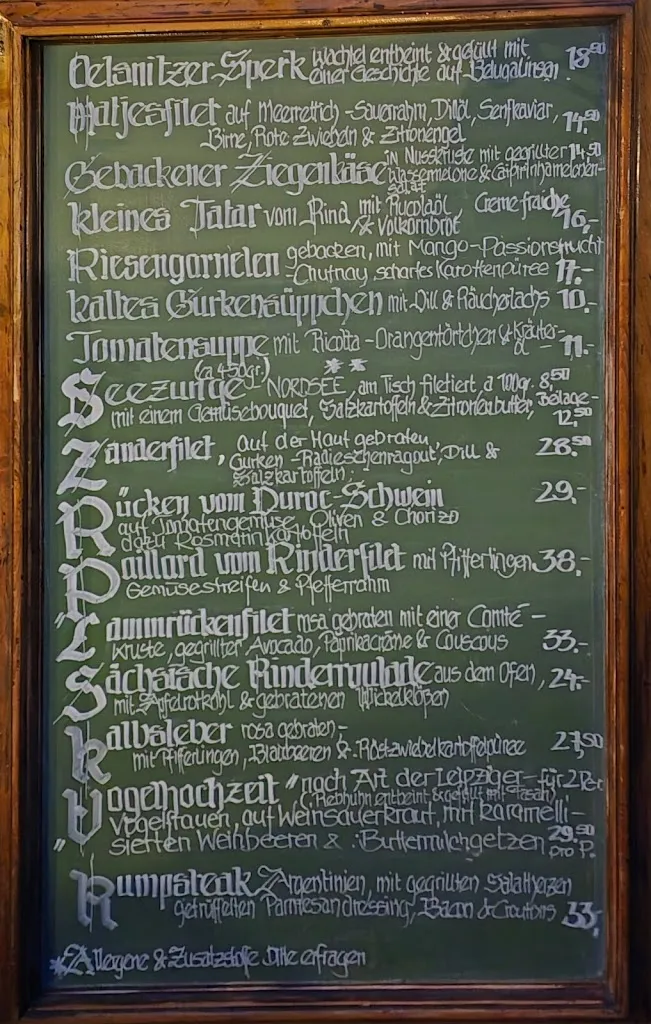 Oelsnitzer Sperk Wachtel entbeint & gefüllt mit 18⁵⁰
einer Geschichte auf Belugalinsen.
Matjesfilet auf Meerrettich-Sauerrahm, Dillöl, Senfkaviar, 14,⁵⁰
Birne, Rote Zwiebeln & Zitronengel
Gebackener Ziegenkäse in Nusskruste mit gegrillter 14,⁵⁰
Wassermelone & Caipirinhamelonen-
salat
kleines Tatar vom Rind mit Rucolaöl, Creme fraiche
& Volkornbrot 16,-
Riesengarnelen gebacken, mit Mango-Passionsfrucht
-Chutney, scharfes Karottenpüree 17.-
kaltes Gurkensüppchen mit Dill & Räucherlachs 10.-
Tomatensuppe mit Ricotta-Orangentörtchen & Kräuter-
öl 11.-
(ca 450gr.) * *
Seezunge NORDSEE, am Tisch filetiert, á 100gr. 8,⁵⁰
mit einem Gemüsebouquet, Salzkartoffeln & Zitronenbutter, Beilage-
12,⁵⁰
Zanderfilet, auf der Haut gebraten, 28.⁵⁰
Gurken-Radieschenragout, Dill &
Salzkartoffeln.
Rücken vom Duroc-Schwein 29.-
auf Tomatengemüse, Oliven & Chorizo
dazu Rosmarinkartoffeln
Paillard vom Rinderfilet mit Pfifferlingen 38,-
Gemüsestreifen & Pfefferrahm
Lammrückenfilet rosa gebraten mit einer Comté-
Kruste, gegrillter Avocado, Paprikacrème & Couscous 33.-
Sächsische Rinderroulade aus dem Ofen, 24.-
mit Apfelrotkohl & gebratenen Wickelklößen
Kalbsleber rosa gebraten-
mit Pfifferlingen, Blaubeeren & Röstzwiebelkartoffelpüree 27,⁵⁰
„Vogelhochzeit" nach Art der Leipziger- für 2 Per
(Rebhuhn entbeint & gefüllt mit Fasan)
Vogelfrauen, auf Weinsauerkraut, mit karamelli-
sierten Weinbeeren & Buttermilchgetzen 29.⁵⁰
pro P.
Rumpsteak Argentinien, mit gegrillten Salatherzen
getrüffelten Parmesandressing, Bacon & Croutons 33,-
*Allergene & Zusatzstoffe bitte erfragen